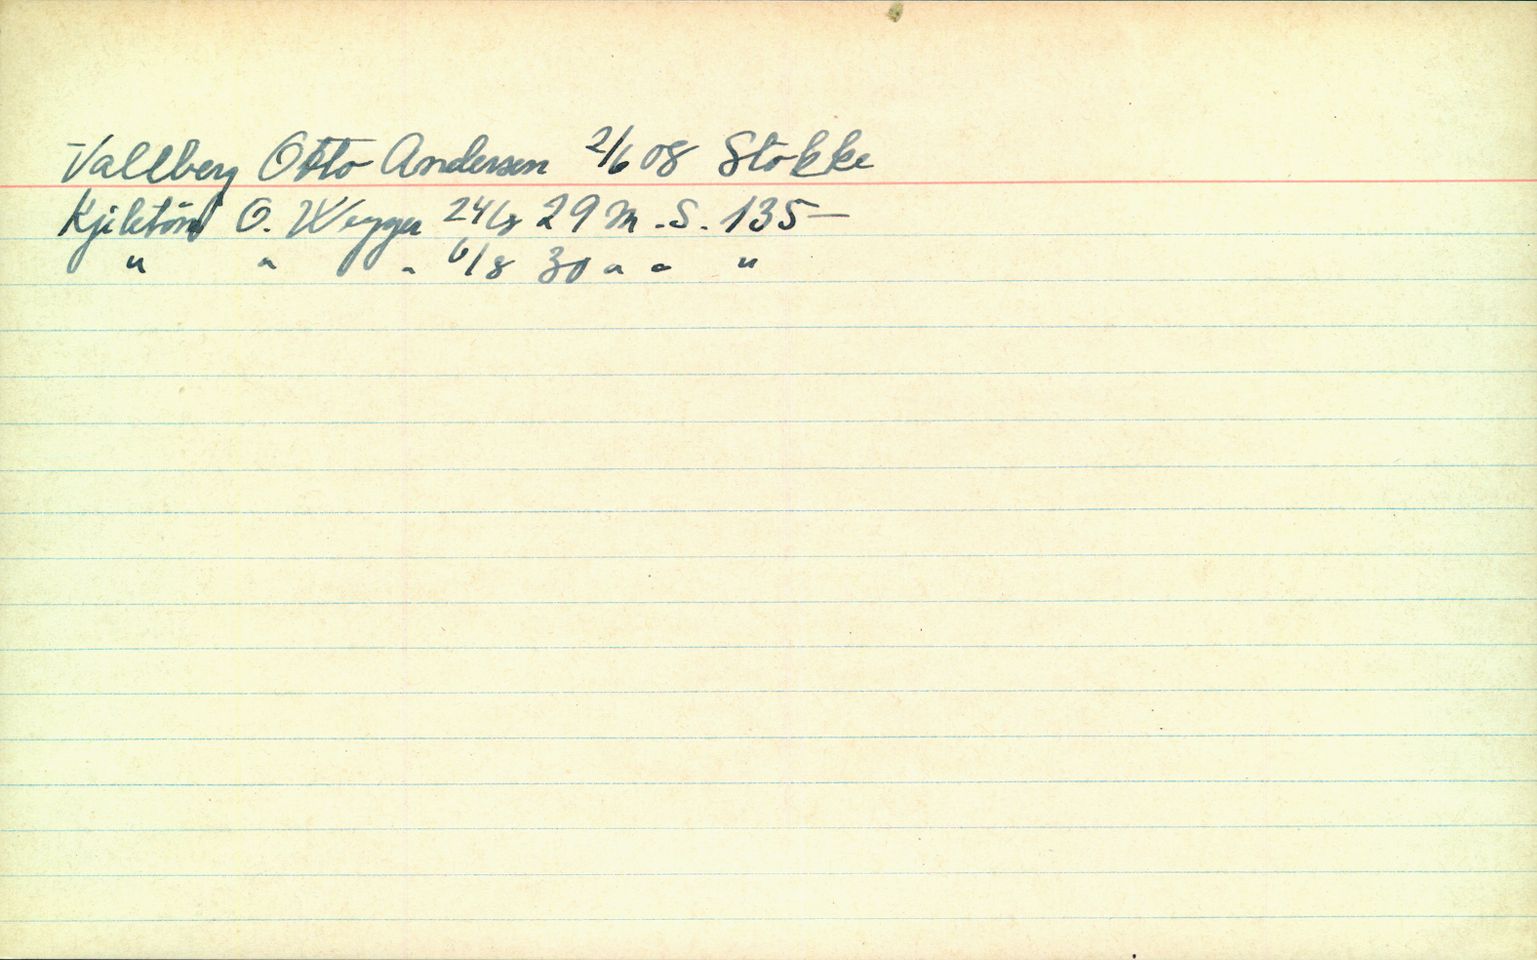 Vallberg Otto Andersen 2/6 08 Stokke
O. Wegger 24/8 29 M. S. 135 —
" " " 6/8 30 " " "